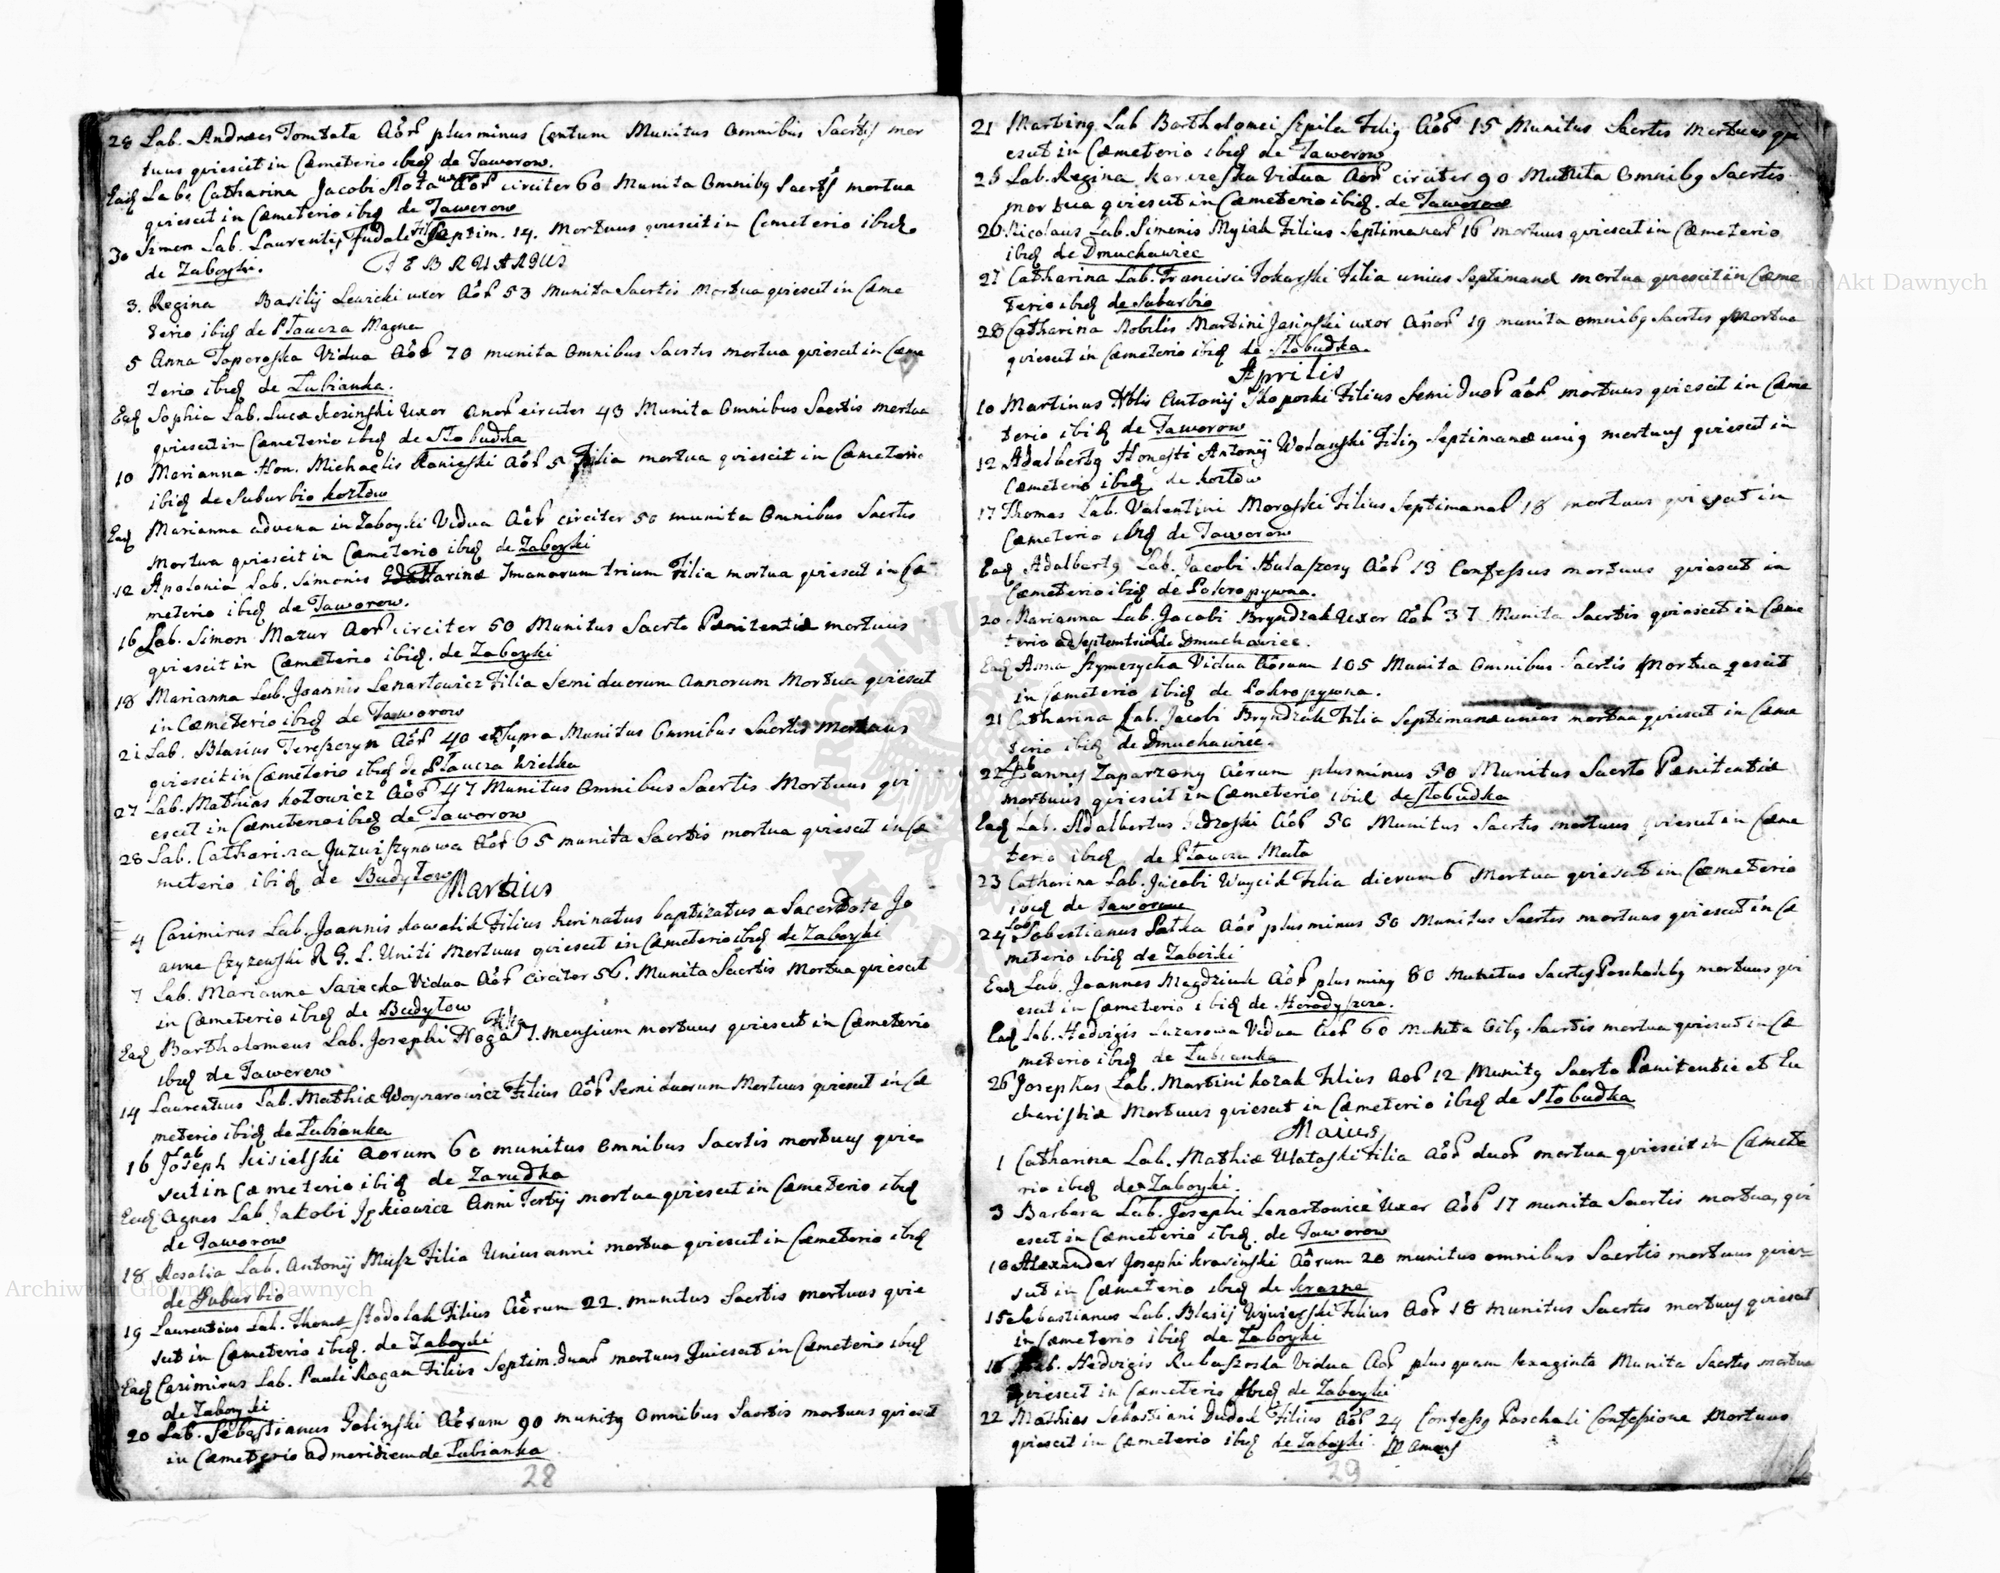 28 Lab. Andreas Tomtala Aõrõ plus minus Centum Munitus Omnibus Sacrtis mor
tuus quiescit in Cæmeterio ibiq de Jaworow.
Eaq Lab. Catharina Jacobi Slota uxor Aõrõ circiter 60 Munita Omnibq Sacrts mortua
quiescit in Cæmeterio ibiq de Jaworow
30 Simon Lab. Laurentij Fudali Fil Septim. 14. Mortuus quiescit in Cemeterio ibiq
de Zaboyki.
FEBRUARIUS
3. Regina Basilij Lewicki uxor Aõrõ 53 Munita Sacrtis Mortua quiescit in Cæme
terio ibiq de Płaucza Magna
5 Anna Toporoska Vidua Aõrõ 70 munita Omnibus Sacrtis mortua quiescit in Cæme
terio ibiq de Łubianka.
Eaq Sophia Lab. Lucæ Kosinski Uxor Anorõ circiter 43 Munita Omnibus Sacrtis mortua
quiescit in Cæmeterio ibiq de Słobudka
10 Marianna Hon. Michaelis Raniewski Aõrõ 5 Filia mortua quiescit in Cæmeterio
ibiq de Suburbio Kozłow
Eaq Marianna advena in Zaboyki Vidua Aõrõ circiter 50 munita Omnibus Sacrtis
Mortua quiescit in Cæmeterio ibiq de Zaboyki
12 Apolonia Lab. Simonis Tarinæ Imanorum trium Filia mortua quiescit in Cæ
meterio ibiq de Jaworow.
16 Lab. Simon Mazur Aorõ circiter 50 Munitus Sacrto Pænitentiæ mortuus
quiescit in Cæmeterio ibiq. de Zaboyki
18 Marianna Lab. Joannis Lenartowicz Filia Semi duorum Annorum Mortua quiescit
in Cæmeterio ibiq de Jaworow
21 Lab. Blasius Tereszczyn Aõrõ 40 et Supra Munitus Omnibus Sacrtis Mortuus
quiescit in Cæmeterio ibiq de Płaucza Wielka
27 Lab. Mathias Kotowicz Aõrõ 47 Munitus Omnibus Sacrtis Mortuus qui
escit in Cæmeterio ibiq de Jaworow
28 Lab. Catharina Juzwiszynowa Aõrõ 65 munita Sacrtis mortua quiescit in Cæ
meterio ibiq de Budyłow
Martius
4 Casimirus Lab. Joannis Kowalik Filius heri natus baptizatus a Sacerdote Jo
anne Czyzewski R. G. L. Uniti Mortuus quiescit in Cæmeterio ibiq de Zaboyki
7 Lab. Marianna Sarecka Vidua Aõrõ circiter 56. Munita Sacrtis Mortua quiescit
in Cæmeterio ibiq de Budyłow
Eaq Bartholomeus Lab. Josephi Noga Filius 7. mensium mortuus quiescit in Cæmeterio
ibiq de Jaworow
14 Laurentius Lab. Mathiæ Woynarowicz Filius Aõrõ Semi duorum Mortuus quiescit in Cæ
meterio ibiq de Łubianka
16 Lab Joseph Kisielski Aorum 60 munitus Omnibus Sacrtis mortuus quie
scit in Cæmeterio ibiq de Zarudka
Eaq Agnes Lab. Jakobi Ickiewicz Anni Tertij mortua quiescit in Cæmeterio ibiq
de Jaworow
18 Rosalia Lab. Antonij Musz Filia Unius anni mortua quiescit in Cæmeterio ibiq
de Suburbio
19 Laurentius Lab. Thomæ Stodolak Filius Aõrum 22. munitus Sacrtis mortuus quie
scit in Cæmeterio ibiq. de Zaboyki
Eaq Casimirus Lab. Pauli Ragan Filius Septim. duarõ mortuus Quiescit in Cæmeterio ibiq
de Zaboyki
20 Lab. Sebastianus Golinski Aõrum 90 munitq Omnibus Sacrtis mortuus quiescit
in Cæmeterio ad meridiem de Łubianka
28
21 Martinq Lab Bartholomei Szpila Filiq Aõrõ 15 Munitus Sacrtis Mortuus qui
escit in Cæmeterio ibiq de Jaworow
25 Lab. Regina Karczeska Vidua Aõrõ circiter 90 Munita Omnibq Sacrtis
mortua quiescit in Cæmeterio ibiq. de Jaworow
26 Nicolaus Lab. Simonis Mysiak Filius Septimanarõ 16 mortuus quiescit in Cæmeterio
ibiq de Dmuchawiec
27 Catharina Lab. Francisci Tokarski Filia unius Septimanæ mortua quiescit in Cæme
terio ibiq de Suburbio
28 Catharina Nobilis Martini Jasinski uxor Anorõ 19 munita omnibq Sacrtis Mortua
quiescit in Cæmeterio ibiq de Słobudka.
Aprilis
10 Martinus Nblis Antonij Skoporki Filius Semi Duorõ aõrõ mortuus quiescit in Cæme
terio ibiq de Jaworow
12 Adalbertq Honesti Antonij Wolanski Filiq Septimanæ uniq mortuus quiescit in
Cæmeterio ibiq de Kozłow
17 Thomas Lab. Valentini Moraski Filius Septimanarõ 18 mortuus quiescit in
Cæmeterio ibiq de Jaworow
Eaq Adalbertq Lab. Jacobi Hulaszczy Aõrõ 13 Confessus mortuus quiescit in
Cæmeterio ibiq de Pokropywna.
20. Marianna Lab. Jacobi Bryndzak Uxor Aõrõ 37 Munita Sacrtis quiescit in Cæme
terio ad Septemtrion de Dmuchawiec.
Eaq Anna Szymczycha Vidua Aõrum 105 Munita Omnibus Sacrtis Mortua qescit
in Cæmeterio ibiq de Pokropywna.
21 Catharina Lab. Jacobi Bryndzak Filia Septimanæ unius mortua quiescit in Cæme
terio ibiq de Dmuchawiec.
22 Lab Joannes Zaparzony Aõrum plus minus 50 Munitus Sacrto Pænitentiæ
mortuus quiescit in Cæmeterio ibiq de Słobudka
Eaq Lab. Adalbertus Aõrõ 50 Munitus Sacrtis mortuus quiescit in Cæme
terio ibiq de Płaucza Mała
23 Catharina Lab. Jacobi Woycik Filia dierum 6 Mortua quiescit in Cæmeterio
ibiq de Jaworow
24 Lab Sebestianus Patka Aõrõ plus minus 50 Munitus Sacrtis mortuus quiescit in Cæ
meterio ibiq de Zaboiki
Eaq Lab. Joannes Magdziak Aõrõ plus minq 80 Munitus Sacrtis Paschalibq mortuus qui
escit in Cæmeterio ibiq de Horodyszcze.
Eaq Lab. Hedvigis Luzarowa Vidua Aõrõ 60 Munita Oibq. Sacrtis mortua quiescit in Cæ
meterio ibiq de Łubianka
26 Josephus Lab. Martini Kozak Filius Aorõ 12 Munitq Sacrto Pænitentiæ et Eu
charistiæ Mortuus quiescit in Cæmeterio ibiq de Słobudka
Maius
1 Catharina Lab. Mathiæ Wataski Filia Aõrõ duorõ mortua quiescit in Cæmete
rio ibiq de Zaboyki.
3 Barbara Lab. Josephi Lenartowicz Uxor Aõrõ 17 munita Sacrtis mortua, qui
escit in Cæmeterio ibiq. de Jaworow
10 Alexander Josephi Krasinski Aõrum 20 munitus omnibus Sacrtis mortuus quie
scit in Cæmeterio ibiq de Krasne
15 Sebastianus Lab. Blasij Wiwierski Filius Aõrõ 18 Munitus Sacrtis mortuus quiescit
in Cæmeterio ibiq de Zaboyki
16 Lab. Hedvigis Rubaszoska Vidua Aõrõ plus quam sexaginta Munita Sacrtis mortua
quiescit in Cæmeterio ibiq de Zaboyki
22 Mathias Sebastiani Dudek Filius Aõrõ 24 Confessq Paschali Confessione Mortuus
quiescit in Cæmeterio ibiq de Zaboyki
29
Archiwum Główne Akt Dawnych
Archiwum Główne Akt Dawnych